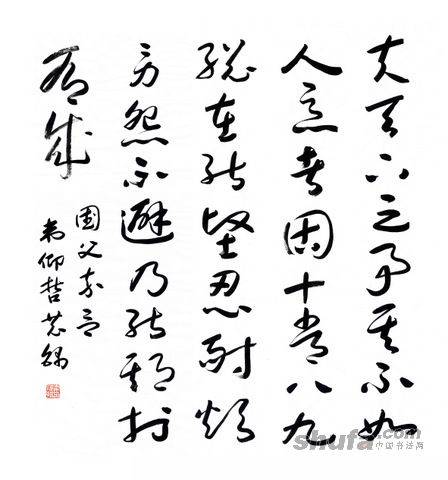 夫天下之事其不如
人意者固十常八九
總在能堅忍耐煩
勞怨不避乃能期於
有成
國父嘉言
仰哲
shufa.com
中国书法网